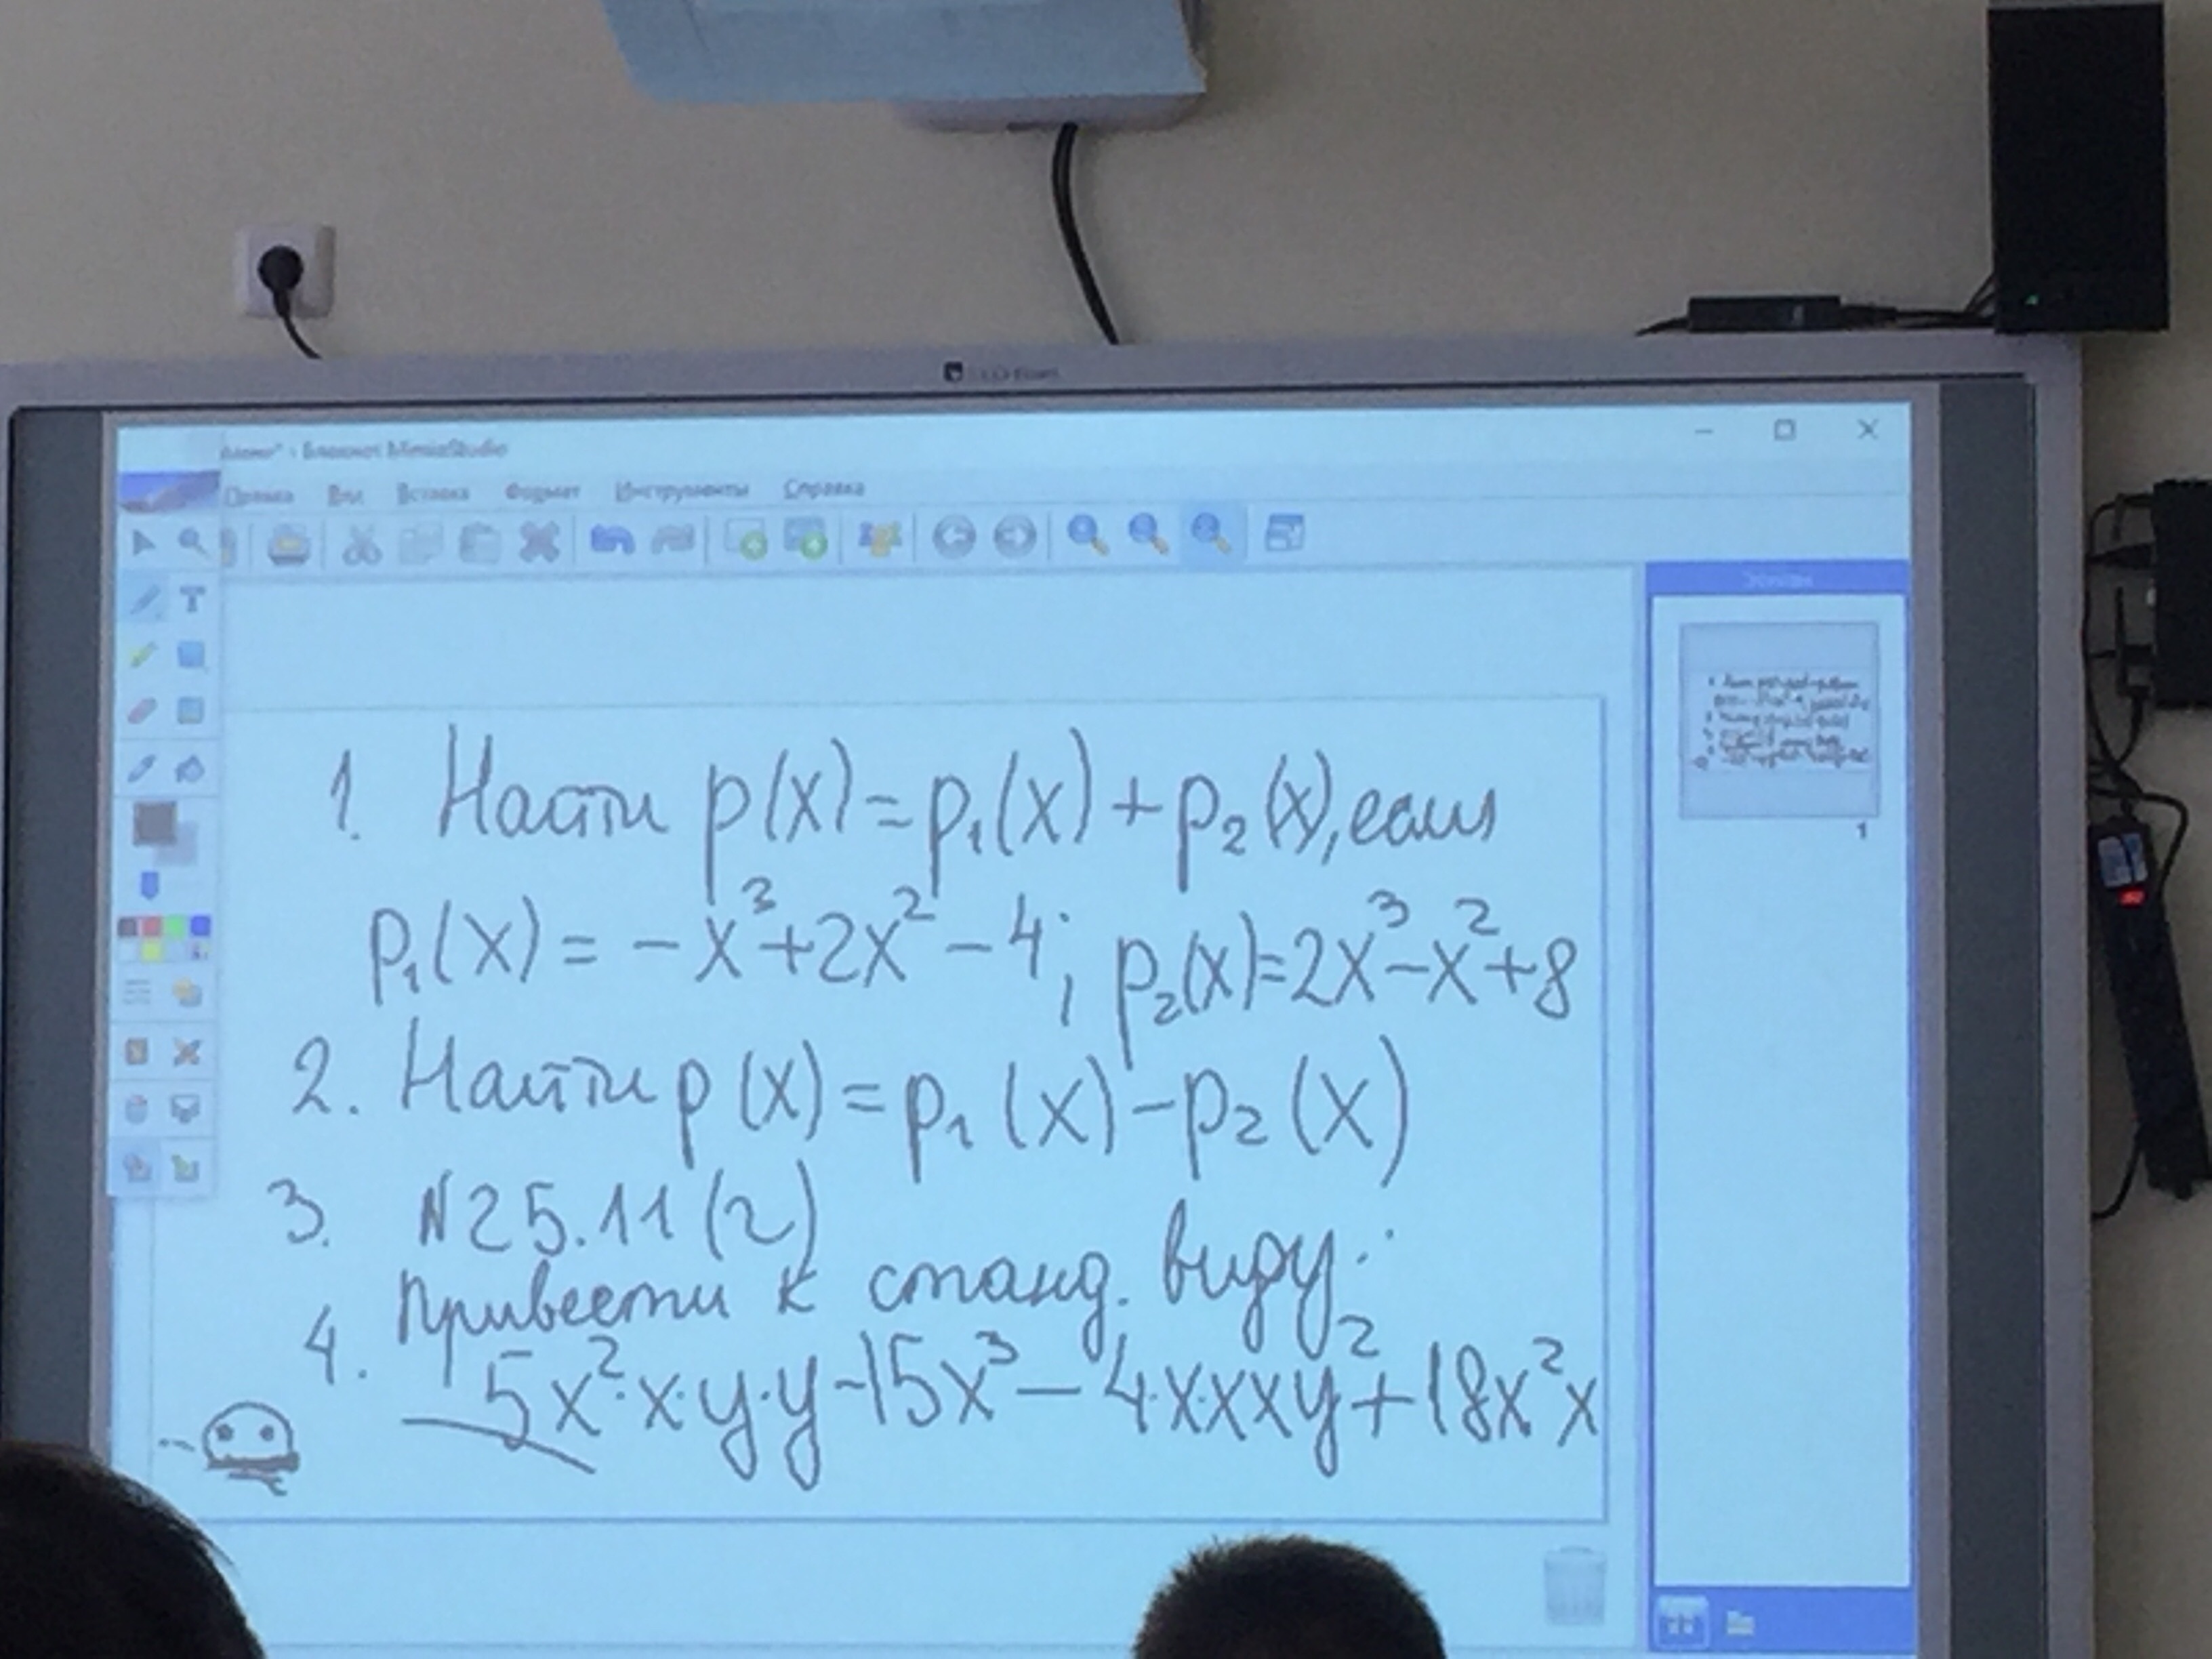 Блокнот MimioStudio
Правка Вид Вставка Формат Инструменты Справка
T
Эскизы
1
1. Найти p(x)=p₁(x)+p₂(x), если
p₁(x) = -x³+2x²-4; p₂(x)=2x³-x²+8
2. Найти p(x)=p₁(x)-p₂(x)
3. №25.11(г)
4. Привести к станд. виду:
5x²·x·y·y-15x³-4·x·xxy²+18x²x